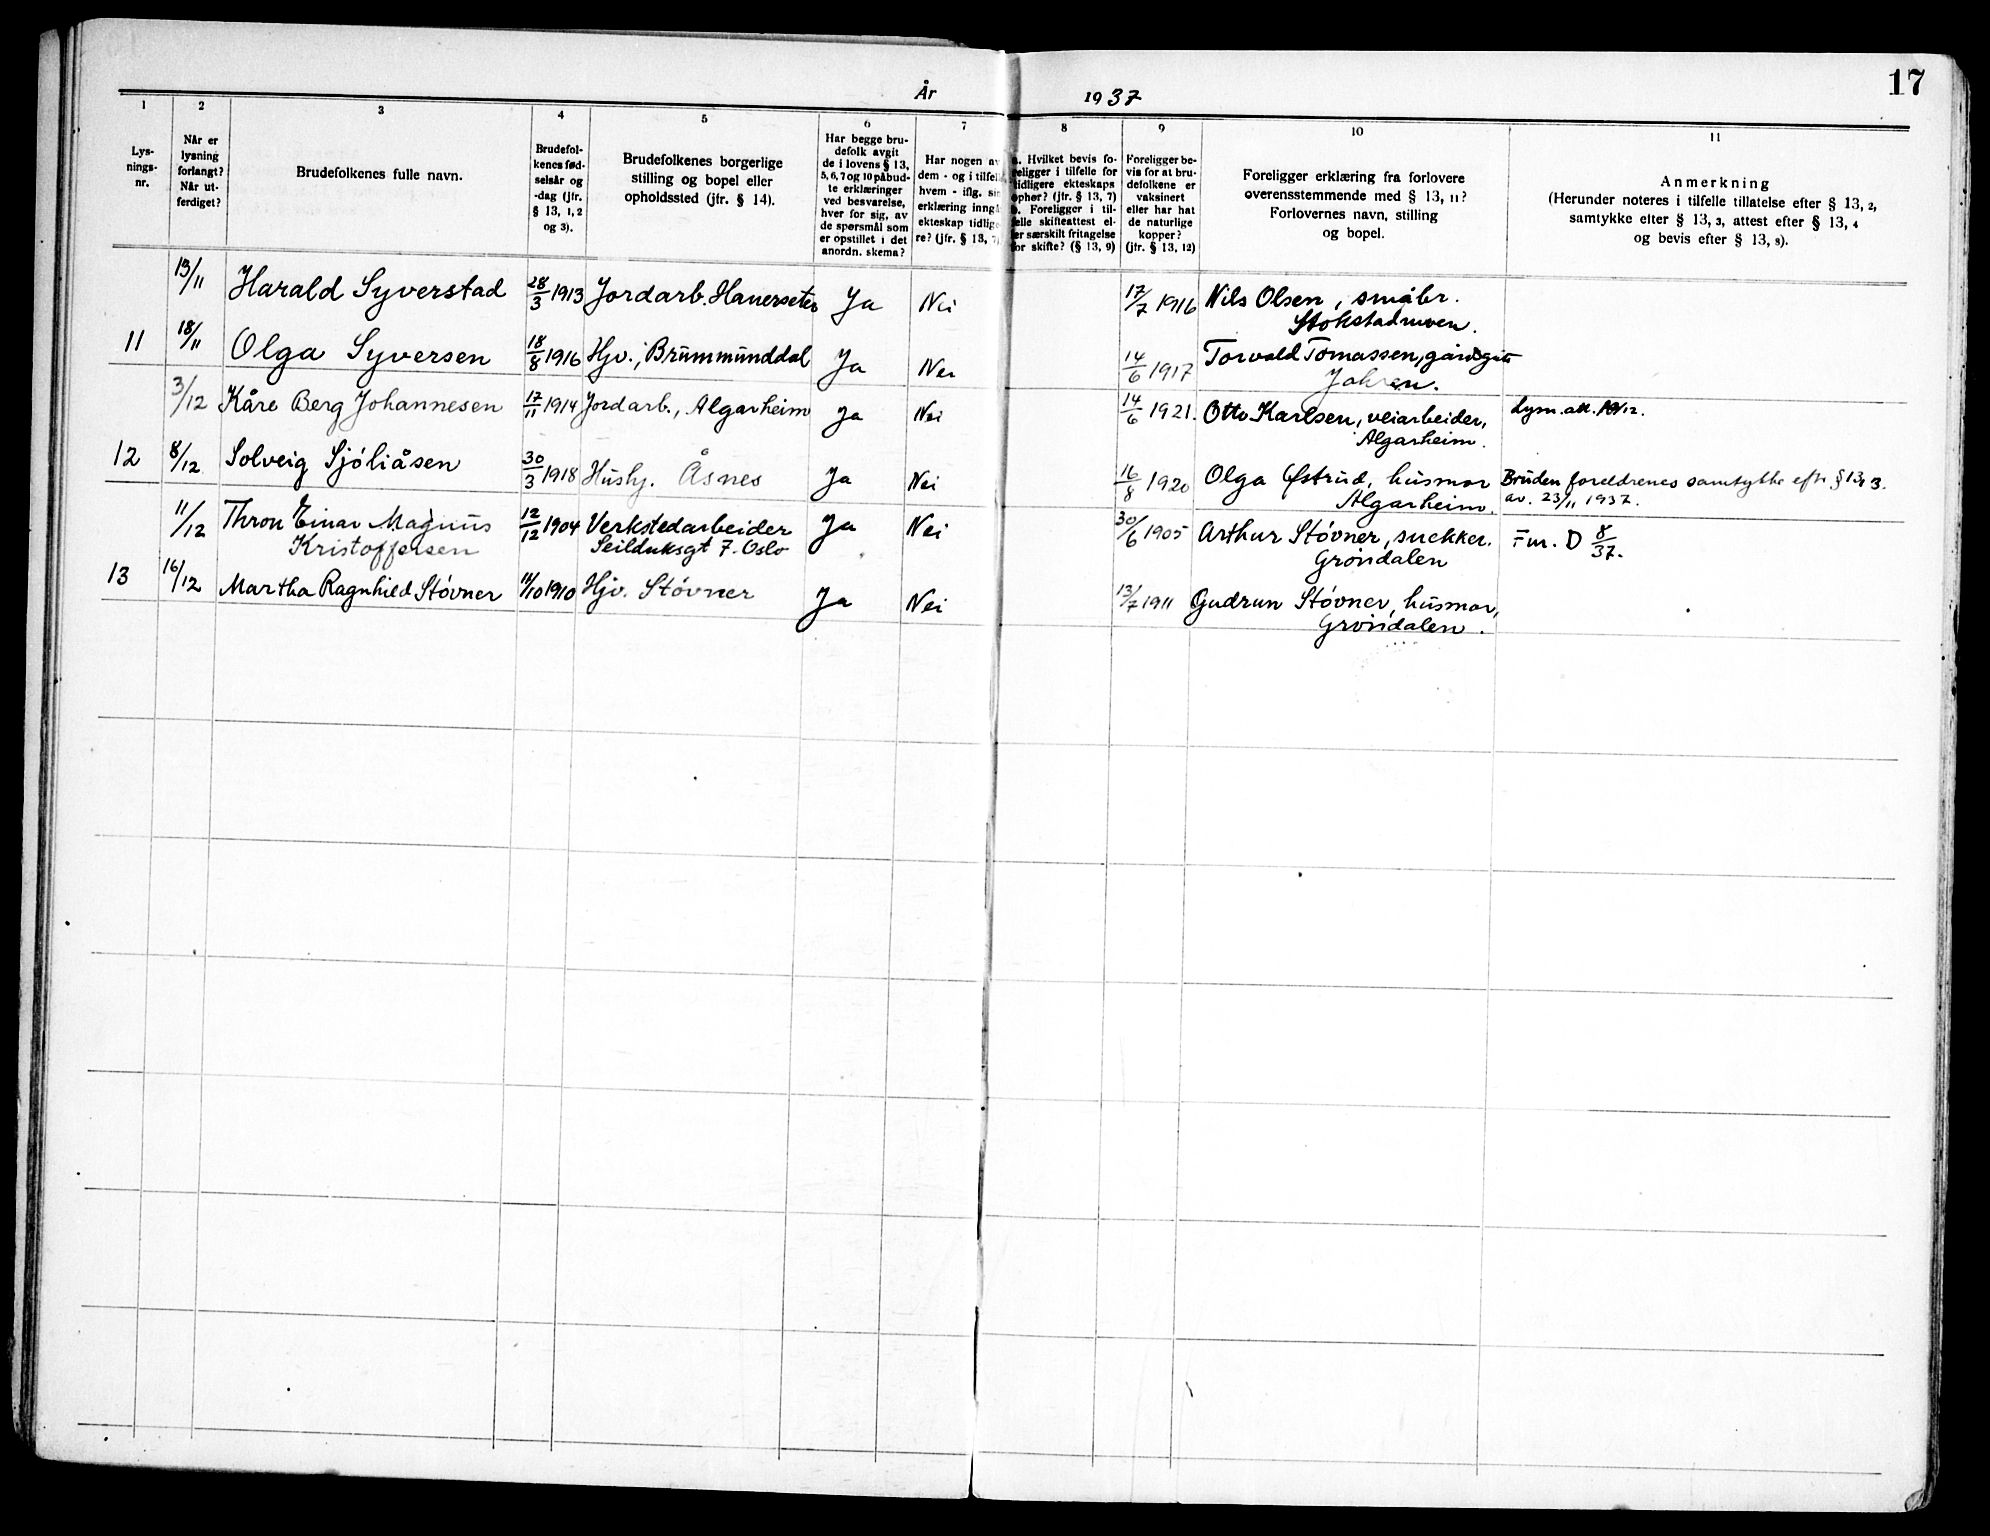 17
År 1937
1 2 3 4 5 6 7 8 9 10 11
Lys-
nings-
nr.
Når er
lysning
forlangt?
Når ut-
ferdiget?
Brudefolkenes fulle navn.
Brudefol-
kenes fød-
selsår og
-dag (jfr.
§ 13, 1, 2
og 3).
Brudefolkenes borgerlige
stilling og bopel eller
opholdssted (jfr. § 14).
Har begge bru-
defolk avgit
de i lovens § 13,
5, 6, 7 og 10 påbud-
te erklæringer
ved besvarelse,
hver for sig, av
de spørsmål som
er opstillet i det
anordn. skema?
Har nogen av
dem - og i tilfelle
hvem - iflg. sin
erklæring inngå
ekteskap tidlige-
re? (jfr. § 13, 7)
a. Hvilket bevis fo-
religger i tilfelle for
tidligere ekteskaps
ophør? (jfr. § 13, 7)
b. Foreligger i til-
felle skifteattest el-
ler særskilt fritagelse
for skifte? (§ 13, 9)
Foreligger be-
vis for at bru-
defolkene er
vaksinert
eller har hat
de naturlige
kopper?
(jfr. § 13, 12)
Foreligger erklæring fra forlovere
overensstemmende med § 13, 11?
Forlovernes navn, stilling
og bopel.
Anmerkning
(Herunder noteres i tilfelle tillatelse efter § 13, 2,
samtykke efter § 13, 3, attest efter § 13, 4
og bevis efter § 13, 8).
13/11 Harald Syverstad 28/3 1913 Jordarb. Hauerseter Ja Nei 17/7 1916 Nils Olsen, småbr.
Stokstadmoen.
11 18/11 Olga Syversen 18/8 1916 Hjv., Brummunddal Ja Nei 14/6 1917 Torvald Tomassen, gårdsgut
Johren.
3/12 Kåre Berg Johannesen 17/11 1914 Jordarb., Algarheim Ja Nei 14/6 1921. Otto Karlsen, veiarbeider,
Algarheim.
Lysn. att.
12 8/12 Solveig Sjøliåsen 30/3 1918 Hushj. Åsnes Ja Nei 16/8 1920 Olga Østrud, husmor
Algarheim.
Bruden foreldrenes samtykke eftr. § 13, 3.
av. 23/11 1937.
11/12 Thron Einar Magnus
Kristoffersen 12/12 1904 Verkstedarbeider
Seilduksgt 7. Oslo Ja Nei 30/6 1905 Arthur Støvner, snekker.
Grøndalen
D 8/37.
13 16/12 Martha Ragnhild Støvner 11/10 1910 Hjv. Støvner Ja Nei 13/7 1911 Gudrun Støvner, husmor,
Grøndalen.